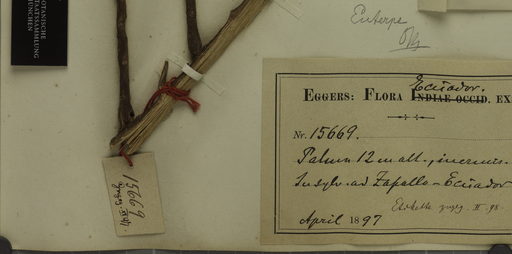 BOTANISCHE
STAATSSAMMLUNG
MÜNCHEN
Euterpe
EGGERS: FLORA INDIAE OCCID. EX
Ecuador.
Nr. 15669.
Palma 12 m alt., inermis.
In sylv. ad Zapallo - Ecuador
April 1897
15669